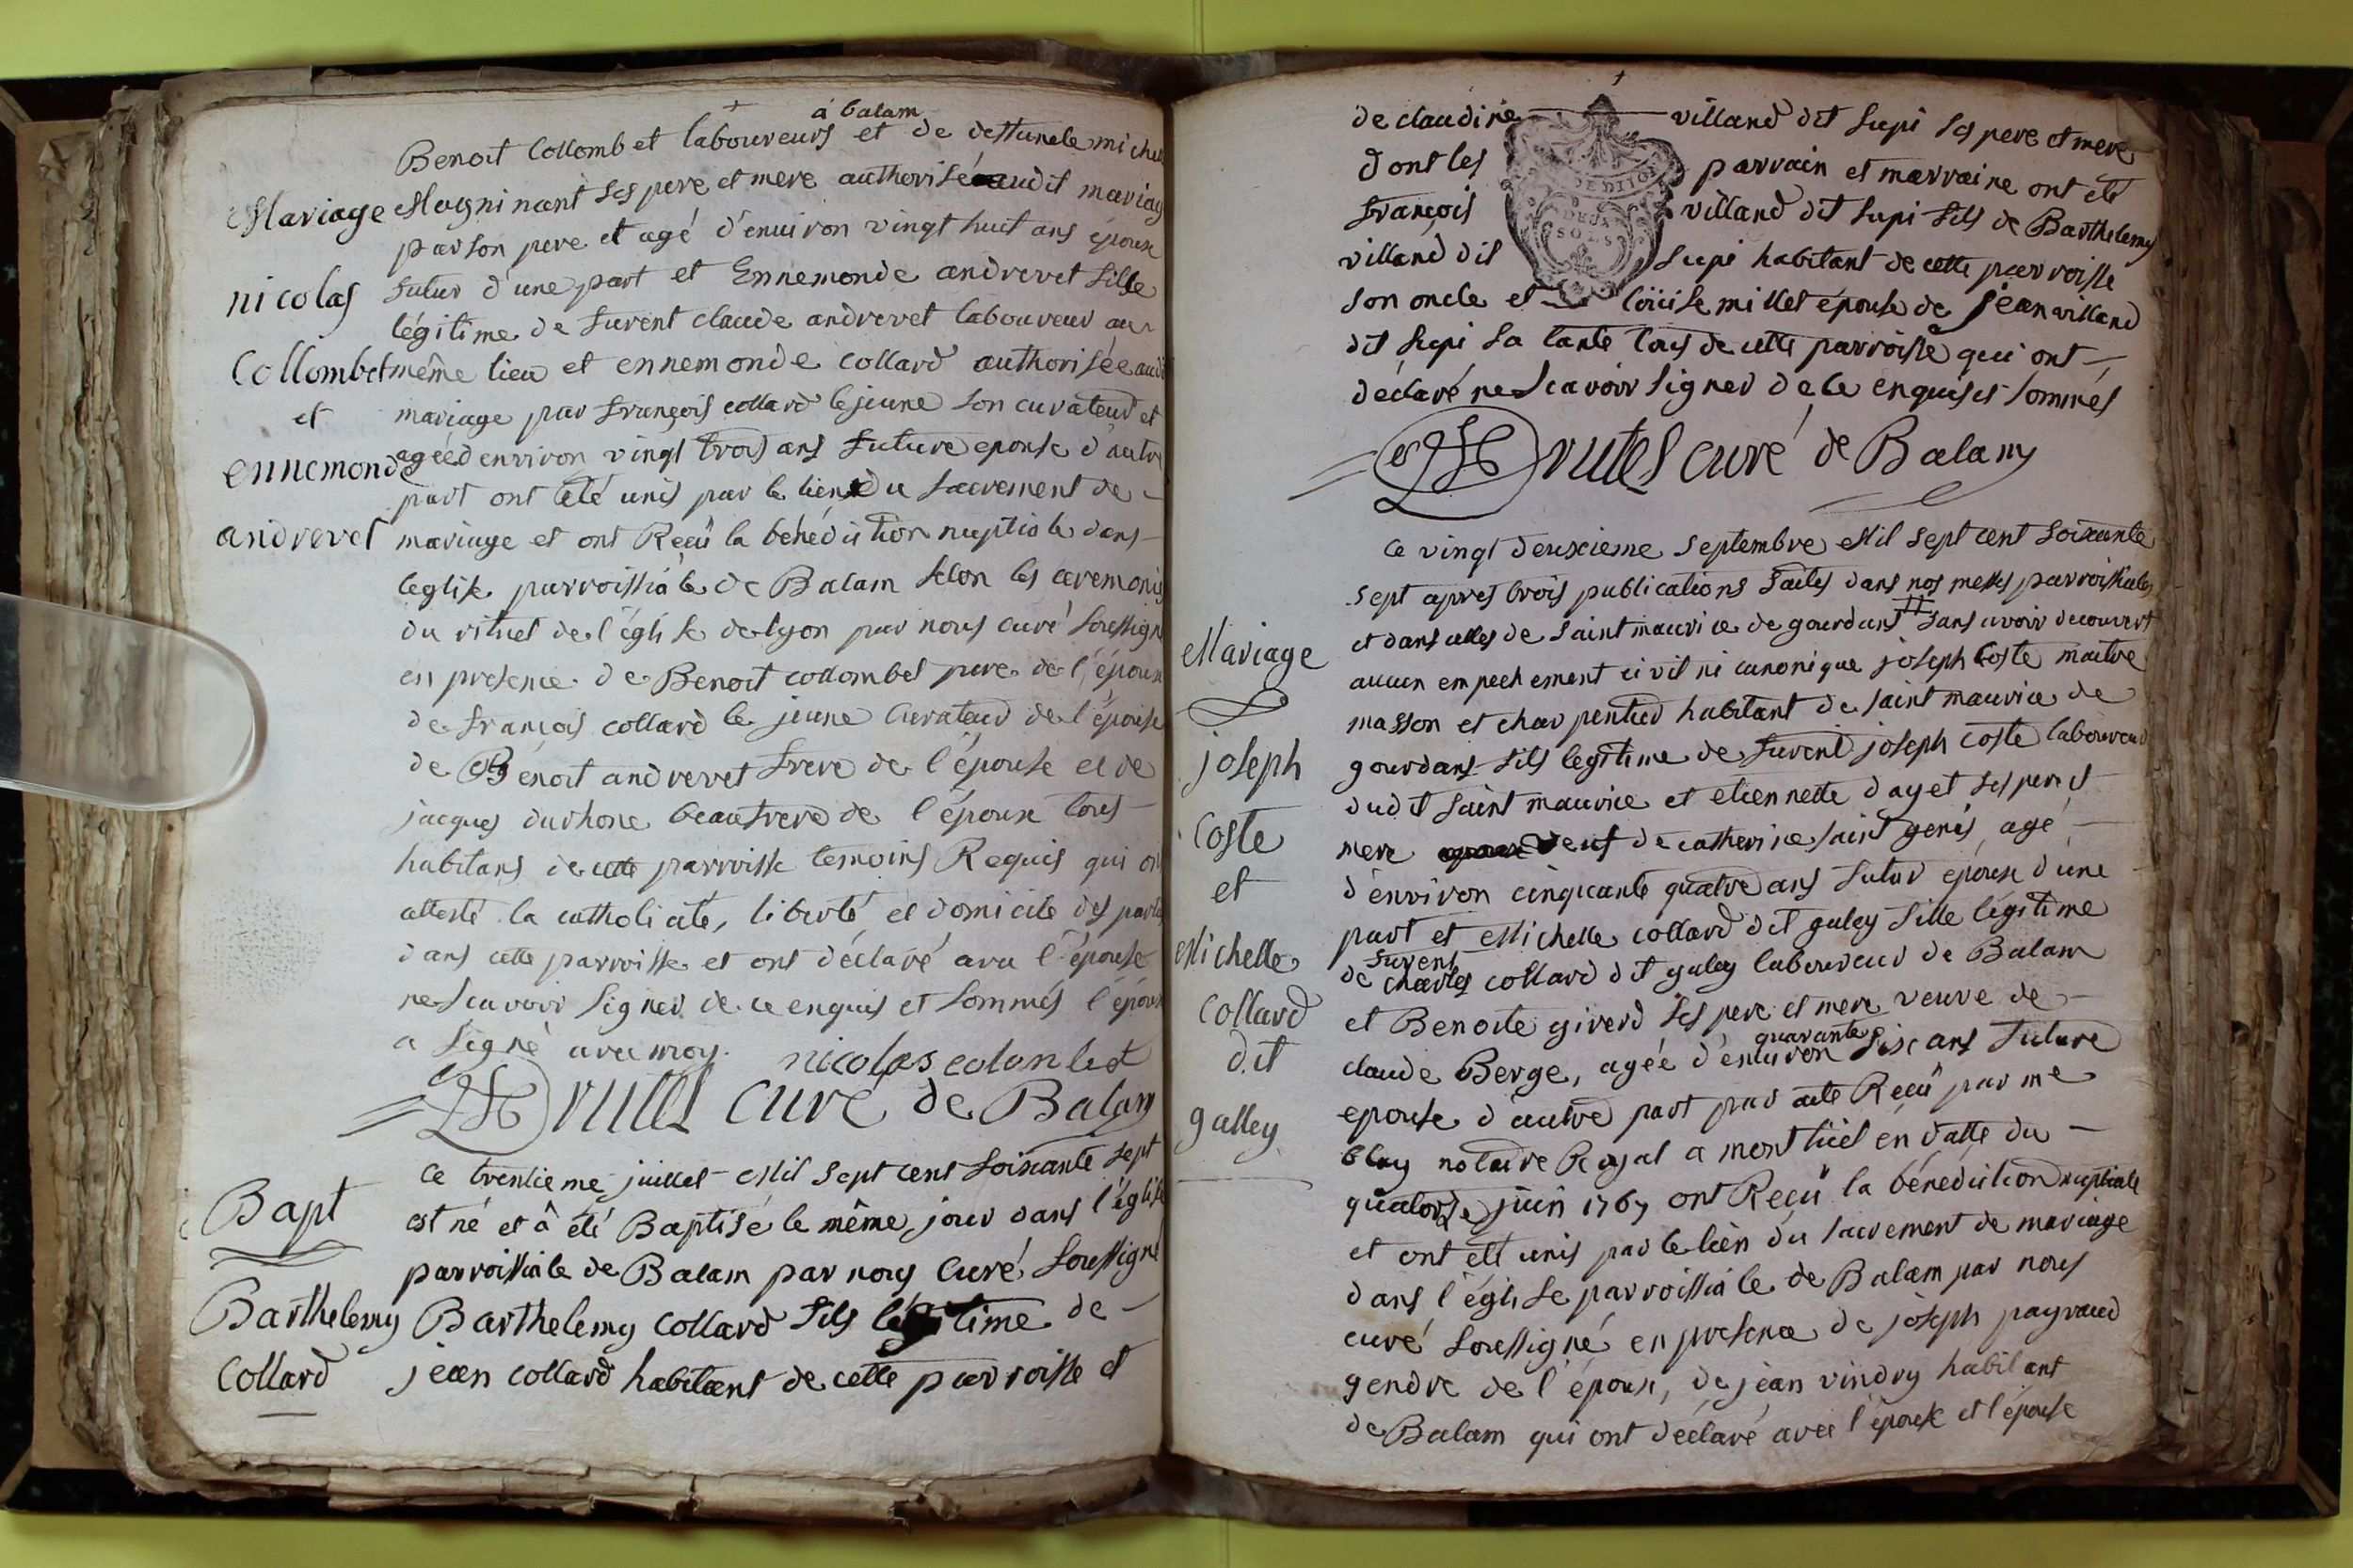 à balam
Benoit Collombet laboureurs et de deffunete michel
Mariage
Magninant ses pere et mere authorisé audit mariag
par son pere et agé d'enuiron vingt huit ans epoux
nicolas
futur d'une part et Ennemonde andrevet fille
légitime de furent claude andrevet laboureur au
Collombet
même lieu et ennemonde collard authorisée aud
et
mariage par françois collard le jeune son curateur et
ennemonde
agée d'environ vingt trois ans future epouse d'autre
part ont été unis par le lien du sacrement de
andrevet
mariage et ont Reçû la bénédiction nuptiale dans
leglise parroissiale de Balam selon les ceremonies
du rituel de l'église de lyon par nous curé soussigné
en presence de Benoit collombet pere de l'époux
de françois collard le jeune curateur de l'épouse
de Bénoit andrevet frere de l'épouse et de
jacques durhone beaufrere de l'époux tous
habitans de cette parroisse temoins Requis qui ont
attesté la catholicité, liberté et domicile des parties
dans cette parroisse et ont déclaré avec l'épouse
ne scavoir signer de ce enquis et sommés l'époux
a signé avec moy. nicolas colonbet
Drutel curé de Balam
Bapt
Ce trentieme juillet Mil sept cent soixante sept
est né et à été Baptisé le même jour dans l'église
parroissiale de Balam par nous Curé soussigné
Barthelemy
Barthelemy Collard fils légitime de
Collard
jean collard habitant de cette parroisse et
de claudine villand dit supi ses pere et mere
dont les parrain et marraine ont été
françois villand dit supi fils de Barthelemy
villand dit supi habitant de cette parroisse
son oncle et loüise millet épouse de jean villand
dit supi sa tante tous de cette parroisse qui ont
déclaré ne scavoir signer de ce enquis et sommés
DE DIJON
DEUX
SOLS
Drutel curé de Balam
Ce vingt deuxieme septembre Mil sept cent soixante
sept apres trois publications faites dans nos messes parroissiales
et dans celles de saint maurice de gourdans sans avoir decouvert
Mariage
aucun empechement civil ni canonique joseph Coste maitre
masson et charpentier habitant de saint maurice de
joseph
gourdans fils legitime de furent joseph coste laboureur
dudit saint maurice et etiennette dayet ses pere et
Coste
mere veuf de catherine saint genis agé
et
d'environ cinquante quatre ans futur epoux d'une
part et Michelle collard dit galey fille légitime
Michelle
de furent charles collard dit galey laboureur de Balam
Collard
et Benoite giverd ses pere et mere veuve de
dit
claude Berge, agée d'environ quarante six ans future
galley
epouse d'autre part par acte Reçû par me
blay notaire Royal a montluel en datte du
quatorze juin 1767 ont Reçu la bénédiction nuptiale
et ont été unis par le lien du sacrement de mariage
dans l'église parroissiale de Balam par nous
curé soussigné en presence de joseph payraud
gendre de l'époux, de jean vindry habitant
de Balam qui ont déclaré avec l'époux et l'épouse